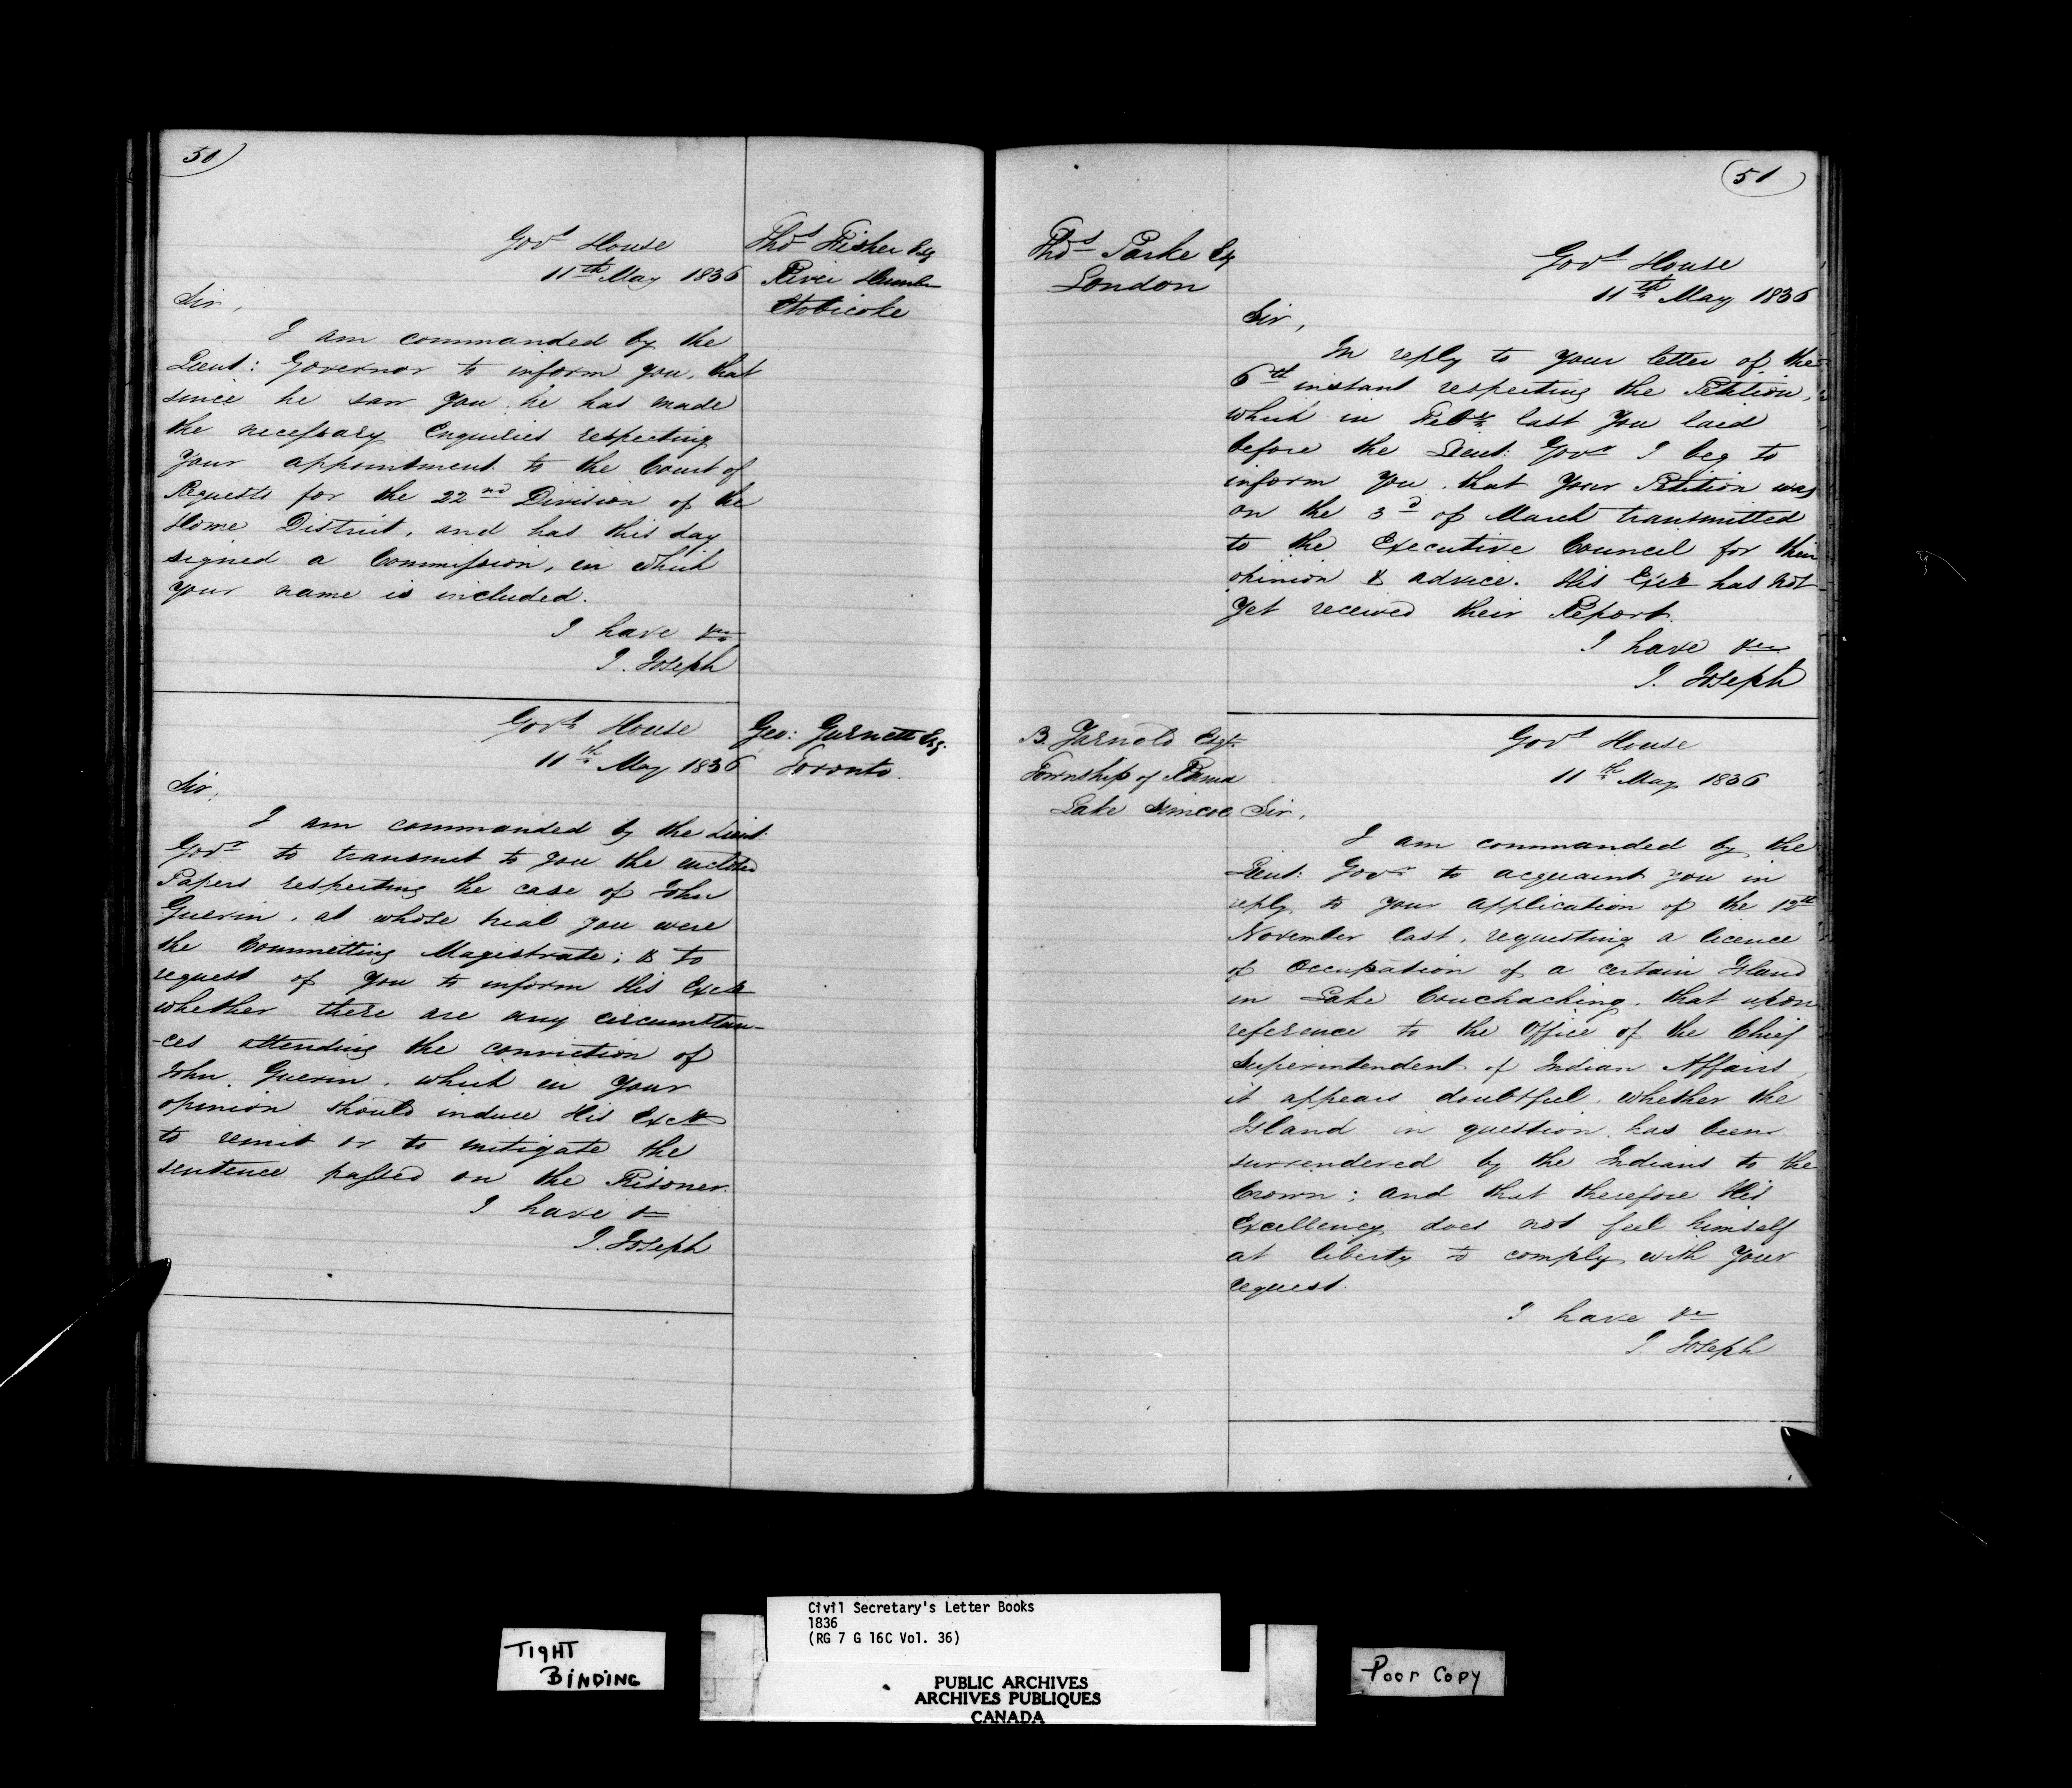 50
Thos Fisher Esq
River Humber
Etobicoke
Govt House
11th May 1836
Sir,
I am commanded by the
Lieut: Governor to inform you, that
since he saw you he has made
the necessary Enquiries respecting
your appointment to the Court of
Requests for the 22nd Division of the
Home District, and has this day
signed a Commission, in which
your name is included.
I have &c
J. Joseph
Geo: Gurnett Esq.
Toronto.
Govt House
11th May 1836
Sir,
I am commanded by the Lieut:
Govr to transmit to you the enclosed
Papers respecting the case of John
Guerin, at whose trial you were
the Committing Magistrate; & to
request of you to inform His Excy
whether there are any circumstan-
-ces attending the conviction of
John Guerin, which in your
opinion should induce His Excy
to remit or to mitigate the
sentence passed on the Prisoner.
I have &c
J. Joseph
51
Thos Parke Eq
London
Govt House
11th May 1836
Sir,
In reply to your letter of the
6th instant respecting the Petition,
which in Feby last you laid
before the Lieut: Govr I beg to
inform you, that your Petition was
on the 3d of March transmitted
to the Executive Council for their
opinion & advice. His Excy has not
yet received their Report.
I have &c
J. Joseph
B. Yarnold Esqr
Township of Rama
Lake Simcoe
Govt House
11th May 1836
Sir,
I am commanded by the
Lieut: Govr to acquaint you in
reply to your application of the 12th
November last, requesting a licence
of Occupation of a certain Island
in Lake Couchaching, that upon
reference to the Office of the Chief
Superintendent of Indian Affairs,
it appears doubtful, whether the
Island in question has been
surrendered by the Indians to the
Crown; and that therefore His
Excellency does not feel himself
at liberty to comply with your
request.
I have &c
J. Joseph
TIGHT
BINDING
Civil Secretary's Letter Books
1836
(RG 7 G 16C Vol. 36)
PUBLIC ARCHIVES
ARCHIVES PUBLIQUES
CANADA
Poor Copy